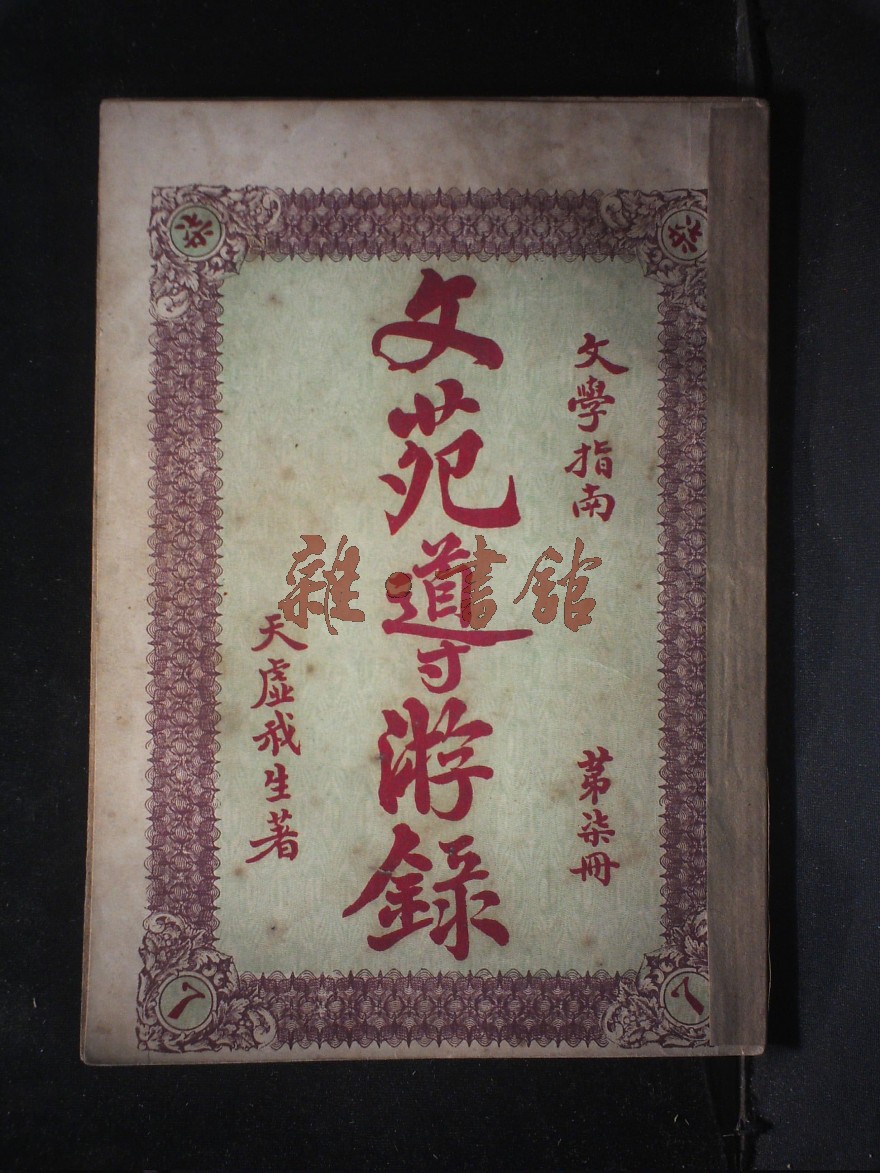 文學指南
第柒冊
文苑導游錄
天虛我生著
雜·書館
柒
柒
7
7